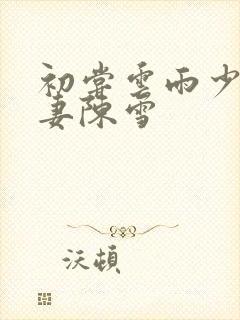 初嘗雲雨少
妻陳雪
沃頓